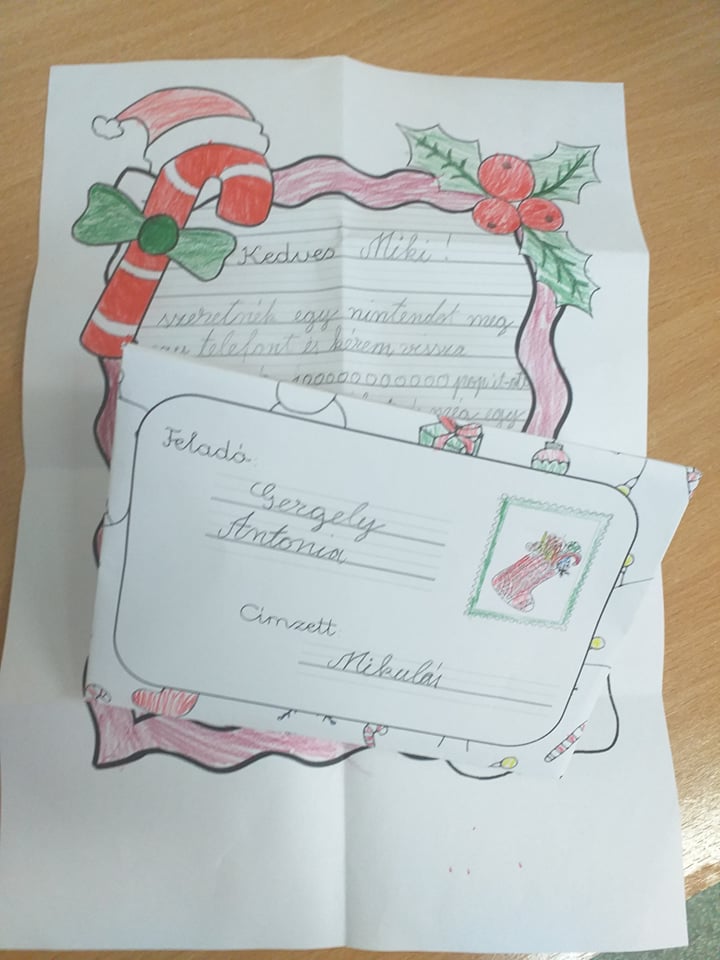 Kedves Miki!
szeretnék egy nintendot meg
telefont és kérem vissza
10000000000000 popit-ot
még egy
Feladó:
Gergely
Antonia
Címzett:
Mikulás